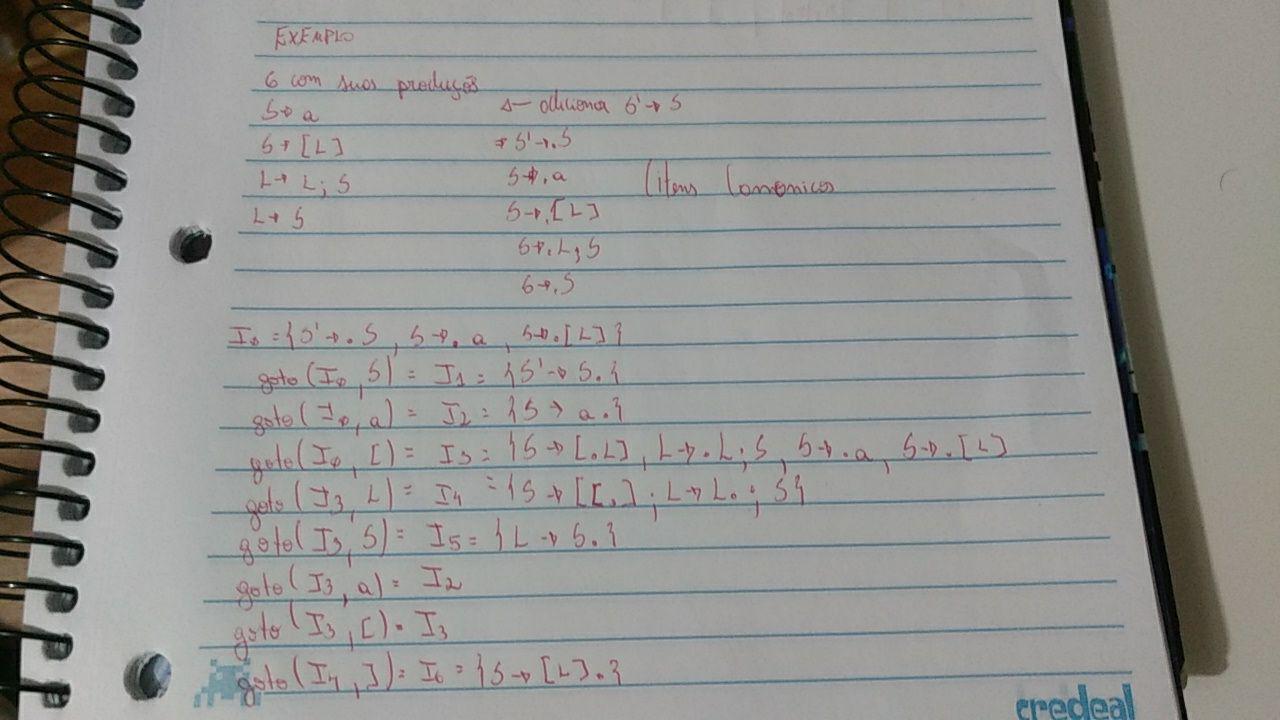 EXEMPLO
G com suas produções
S → a ← adiciona S' → S
S → [L] → S' → .S
L → L; S S → .a (Itens Canonicos
L → S S → .[L]
S → .L; S
S → .S
I₀ = {S' → .S, S → .a, S → .[L]}
goto(I₀, S) = I₁ = {S' → S.}
goto(I₀, a) = I₂ = {S → a.}
goto(I₀, [) = I₃ = {S → [.L], L → .L; S, S → .a, S → .[L]
goto(I₃, L) = I₄ = {S → [L.]; L → L.; S}
goto(I₃, S) = I₅ = {L → S.}
goto(I₃, a) = I₂
goto(I₃, [) = I₃
goto(I₄, ]) = I₆ = {S → [L].}
credeal